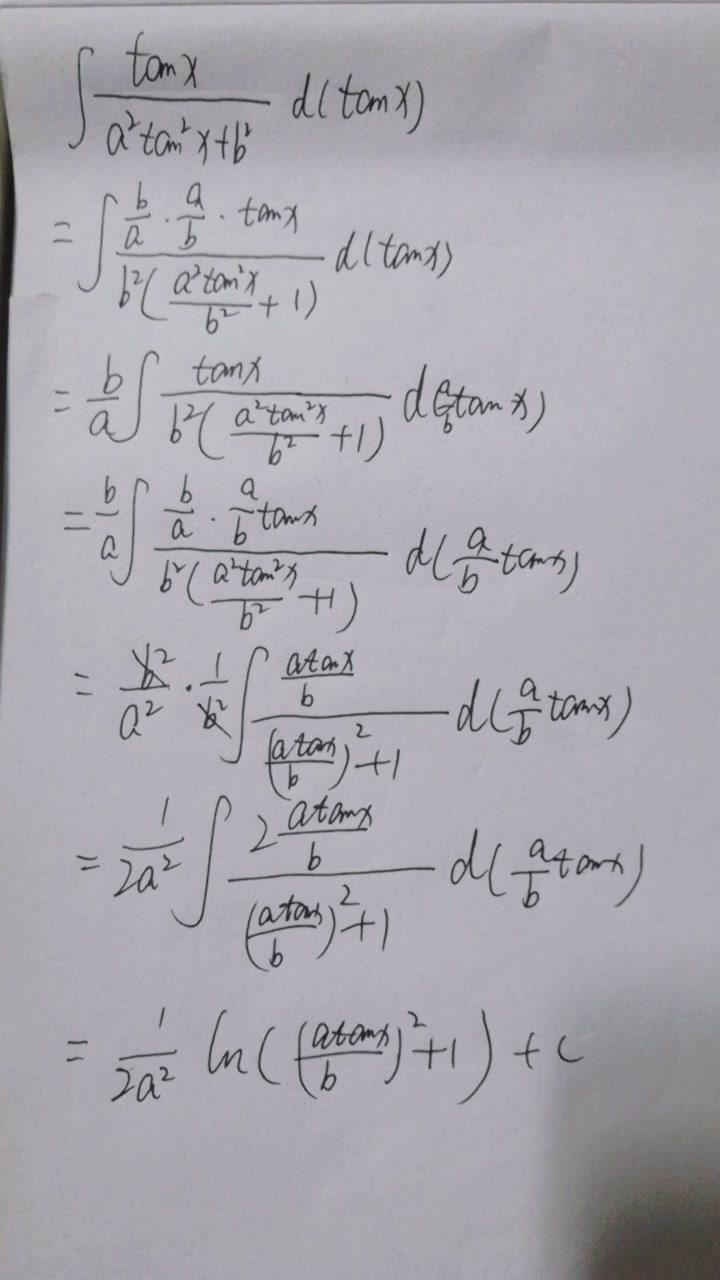 ∫ tanx / (a²tan²x+b²) d(tanx)
= ∫ (b/a · a/b · tanx) / (b²(a²tan²x/b² + 1)) d(tanx)
= b/a ∫ tanx / (b²(a²tan²x/b² + 1)) d(a/b tanx)
= b/a ∫ (b/a · a/b tanx) / (b²(a²tan²x/b² + 1)) d(a/b tanx)
= b²/a² · 1/b² ∫ (atanx/b) / ((atanx/b)² + 1) d(a/b tanx)
= 1/2a² ∫ (2 atanx/b) / ((atanx/b)² + 1) d(a/b tanx)
= 1/2a² ln((atanx/b)² + 1) + c